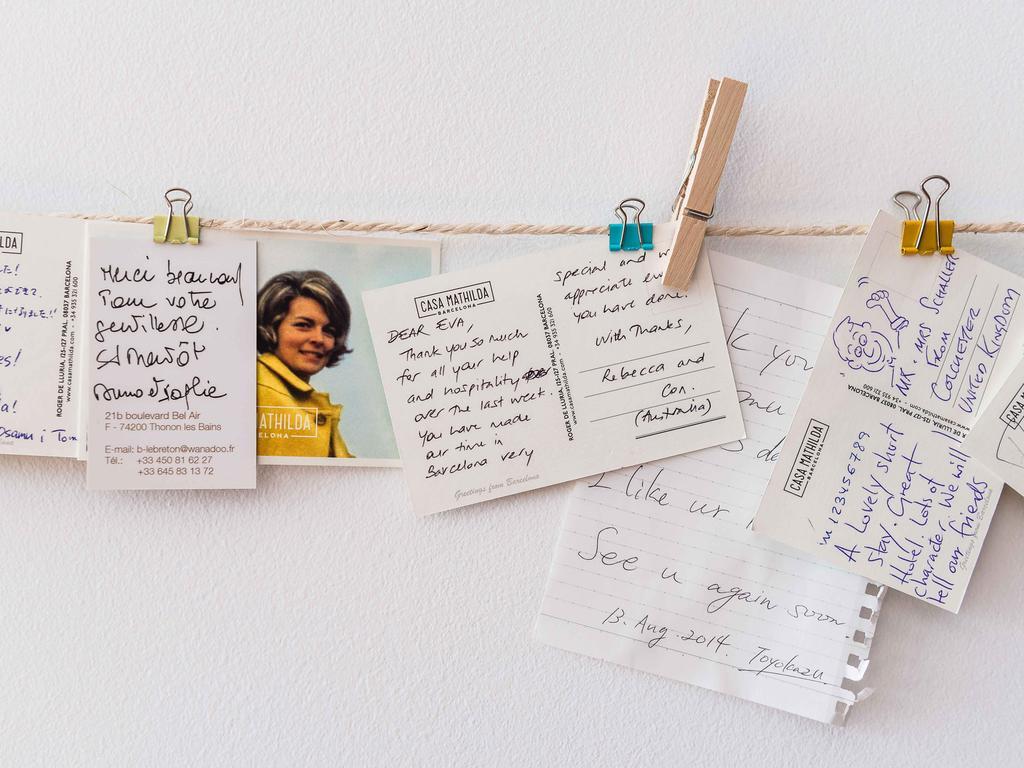 LDA
した!
s!
a!
Osamu i Tom
ROGER DE LLURIA, 125-127 PRAL. 08037 BARCELONA
www.casamathilda.com - +34 935 321 600
Merci
votre
gentillesse.
Bruno et Sophie
21b boulevard Bel Air
F - 74200 Thonon les Bains
E-mail: b-lebreton@wanadoo.fr
Tél.: +33 450 81 62 27
+33 645 83 13 72
MATHILDA
ELONA
CASA MATHILDA
BARCELONA
DEAR EVA,
Thank you so much
for all your help
and hospitality
over the last week.
You have made
our time in
Barcelona very
Greetings from Barcelona
ROGER DE LLURIA, 125-127 PRAL. 08037 BARCELONA
www.casamathilda.com - +34 935 321 600
special and w
appreciate ev
you have done.
With Thanks,
Rebecca and
Con.
(Australia)
k you
I like ur
See u again soon
13. Aug. 2014.
Toyokazu
MR. & MRS SCHALLER
FROM
COLCHESTER
UNITED KINGDOM
CASA MATHILDA
BARCELONA
in 123456789
A Lovely short
stay. Great
Hotel. Lots of
character. We will
tell our friends
Greetings from Barcelona
CASA